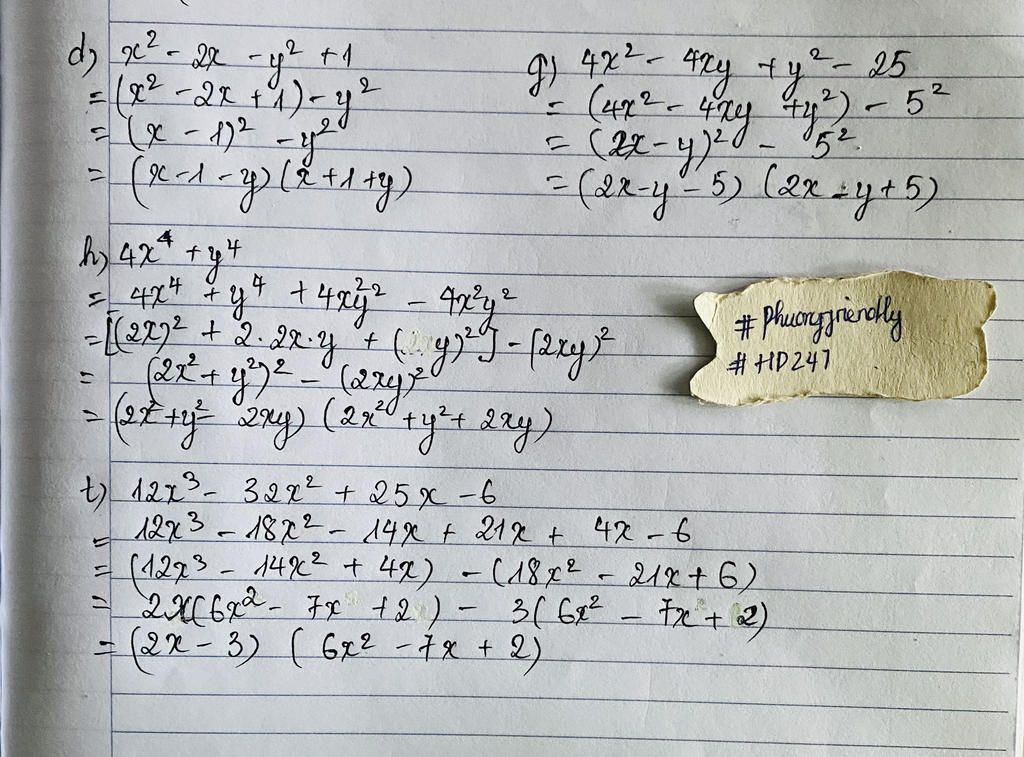 d) x² - 2x - y² + 1
= (x² - 2x + 1) - y²
= (x - 1)² - y²
= (x - 1 - y) (x + 1 + y)
g) 4x² - 4xy + y² - 25
= (4x² - 4xy + y²) - 5²
= (2x - y)² - 5².
= (2x - y - 5) (2x - y + 5)
h) 4x⁴ + y⁴
= 4x⁴ + y⁴ + 4x²y² - 4x²y²
= [(2x)² + 2.2x.y + (y)²] - [2xy)²
= (2x² + y²)² - (2xy)²
= (2x² + y² - 2xy) (2x² + y² + 2xy)
t) 12x³ - 32x² + 25x - 6
= 12x³ - 18x² - 14x + 21x + 4x - 6
= (12x³ - 14x² + 4x) - (18x² - 21x + 6)
= 2x(6x² - 7x + 2) - 3(6x² - 7x + 2)
= (2x - 3) (6x² - 7x + 2)
# Phuongfriendly
# HD247